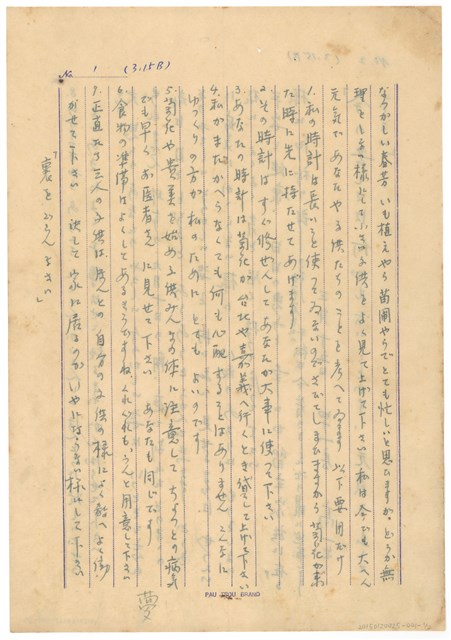 No. 1 (3.15B)
なつかしい春芳 いも植えやら苗圃やらでとても忙しいと思ひますが、どうか無
理をしない様にして小さい子供をよく見て上げて下さい 私は今でも大へん
元気で あなたや子供たちのことを考へてゐます 以下要用だけ
1. 私の時計は長いこと使ってゐないのでさびてしまひますから 菊花が来
た時に先に持たせてあげます
2. その時計は すぐ修ぜんして あなたが大事に使って下さい
3. あなたの時計は菊花が 台北や嘉義へ行くとき貸して上げて下さい
4. 私がまだかへらなくても何も心配することはありません こんなに
ゆっくりの方が私のために とても よいのです
5. 菊花や貴美を始め子供みんなの体に注意して ちょっとの病気
でも早く お医者さんに見せて下さい あなたも同じです
6. 食物の準備はよくしてあるさうですね、くれぐれも、うんと用意して下さい
7. 正直な 三人の子供は ほんとの自分の子供の様に よく教へよく働
かせて下さい 決して家に居るのがいやにならない様にして下さい
「裏をごらんなさい」
夢
PAU TSOU BRAND